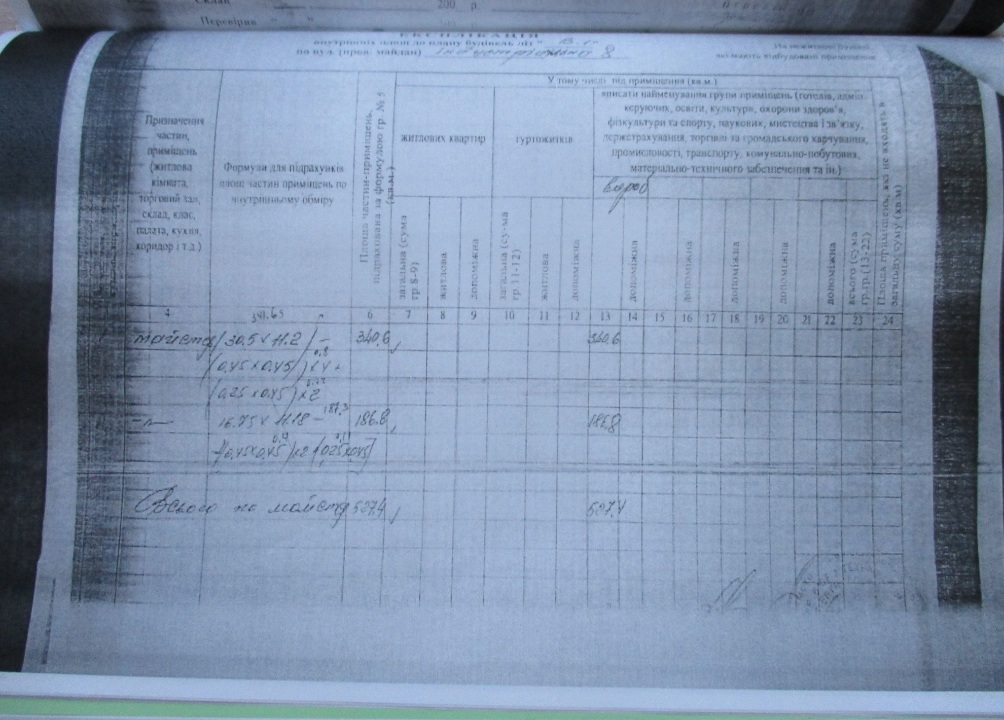 Склад
200 р
Перевірив " "
ЕКСПЛІКАЦІЯ
внутрішніх площ до плану будівель літ "В-1"
по вул. (пров. майдан) Індустріальна 8
На нежилові будівлі
У тому числі під приміщення (кв.м.)
Призначення частин, приміщень (житлова кімната, торговий зал, склад, клас, палата, кухня, коридор і т.д.)
Формули для підрахунків площ частин приміщень по внутрішньому обміру
Площа частин-приміщень, підрахована за формулою гр. № 5 (кв.м.)
житлових квартир
гуртожитків
вписати найменування групи приміщень (готелів, адмін.
керуючих, освіти, культури, охорони здоров'я,
фізкультури та спорту, наукових, мистецтва і зв'язку,
держстрахування, торгівлі та громадського харчування,
промисловості, транспорту, комунально-побутових,
матеріально-технічного забезпечення та ін.)
вироб
загальна (сума гр 8-9)
житлова
допоміжна
загальна (су-ма гр.11-12)
житлова
допоміжна
допоміжна
допоміжна
допоміжна
допоміжна
допоміжна
всього (сума гр.гр (13-22)
Площа приміщень, які не входять в загальну суму (кв м)
4 6 7 8 9 10 11 12 13 14 15 16 17 18 19 20 21 22 23 24
341.65
майстер (30.5 х 11.2) - 340,6 340.6
(0,45 х 0,45) х 4 +
(0,25 х 0,45) х 2
-"- 16.75 х 11.18 - 187,3 186.8 186,8
[(0,45х0,45) х2 + (0,25х0,45]
Всього по майстр 527,4 527,4